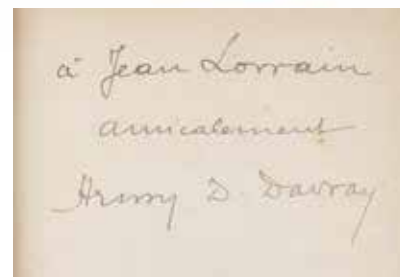 à Jean Lorrain
amicalement
Henry D. Davray